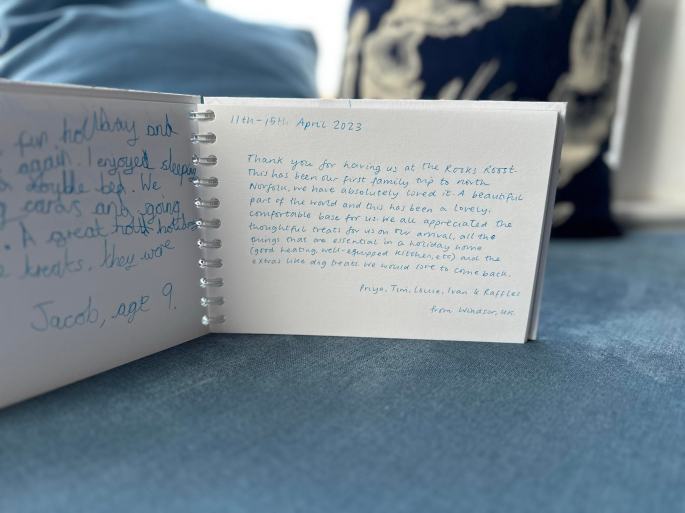 fun holliday and
again. I enjoyed sleeping
double bed. We
cards and going
. A great holiday
treats. they were
Jacob, age 9.
11th-15th April 2023
Thank you for having us at the Rooks Roost.
This has been our first family trip to north
Norfolk, we have absolutely loved it. A beautiful
part of the world and this has been a lovely,
comfortable base for us. We all appreciated the
thoughtful treats for us on our arrival, all the
things that are essential in a holiday home
(good heating, well-equipped kitchen, etc) and the
extras like dog treats. We would love to come back.
Priya, Tim, Louie, Ivan & Raffles
from Windsor, UK.